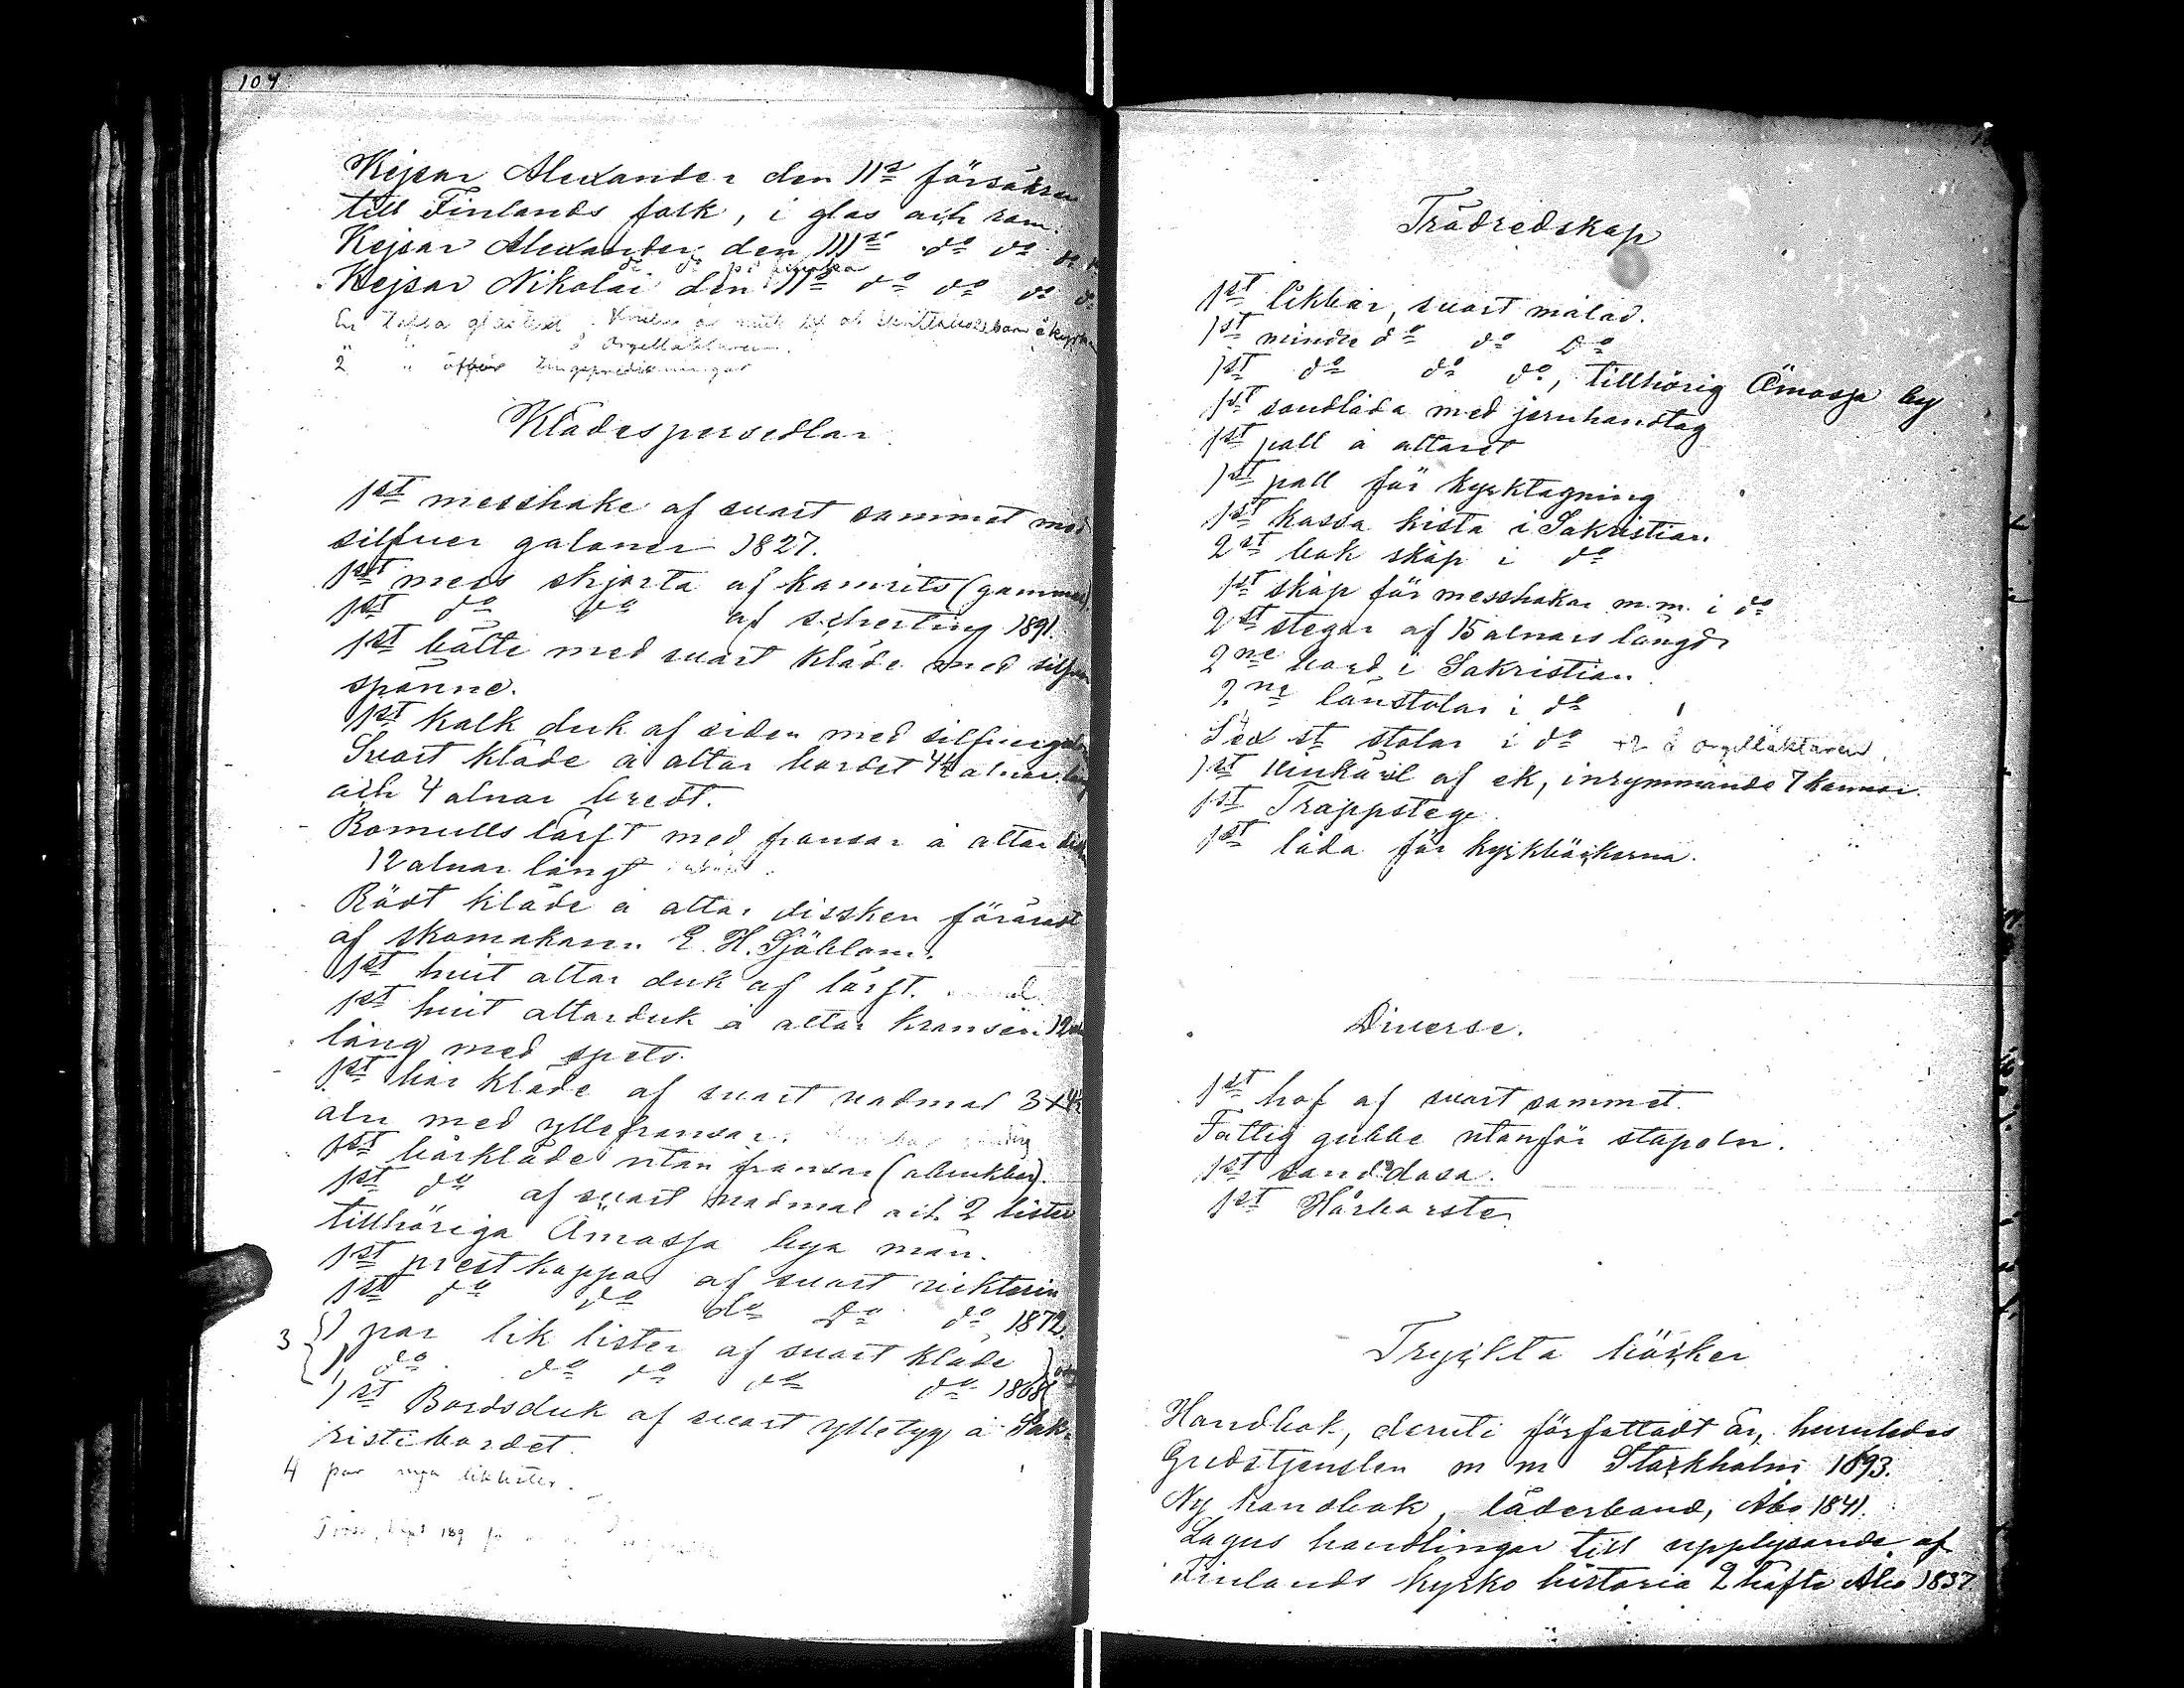 107
Kejsar Alexander den II:s försäkran
till Finlands folk, i glas och ram.
Kejsar Alexander den III:s do do do
do do på finska
Kejsar Nikolai den II:s do do do do
En Tafla
å Orgelläktaren.
2 " öfver
Klädespersedlar
1st messhake af svart sammet med
silfver galoner 1827.
1st mess skjorta af kamrits (gammal)
1st do do af scherting 1891.
1st bälte med svart kläde med silfver
spänne.
1st Kalk duk af siden med silfver
Svart kläde å altar bordet 4½ alnar
och 4 alnar bredt.
Bomulls lärft med fransar å altar
12 alnar långt
Rödt kläde å altar dissken föräradt
af skomakaren E. H. Sjöblom.
1st hvit altar duk af lärft.
1st hvit altarduk å altar kransen 12
lång med spets.
1st bår kläde af svart vadmal 3 x 4½
aln med yllefransar.
1st bårkläde utan fransar (obrukbar).
1st do af svart vadmal och 2 lister
tillhöriga Ämossa bya män.
1st prestkappa af svart
1st do do do do do 1872.
3 1 par lik lister af svart kläde
1 do do do do do 1868
1st Bordsduk af svart ylletyg å Sak-
ristibordet.
4 par nya liklister.
Trädredskap
1st likbår, svart målad.
1st mindre do do do
1st do do do, tillhörig Ämossa by
1st sandlåda med jernhandtag
1st pall å altaret
1st pall för kyrktagning
1st kassa kista i Sakristian
2st bok skåp i do
1st skåp för messhakar m.m. i do
2st stegar af 15 alnars längd
2ne bord i Sakristian
2ne länstolar i do
Sex st stolar i do +2 å orgelläktaren.
1st vinkäril af ek, inrymmande 7 kannor.
1st Trappstege
1st låda för kyrkböckerna.
Diverse.
1st hof af svart sammet.
Fattig gubbe utanför stapeln.
1st sanddosa.
1st Hårborste
Tryckta böcker
Handbok, deruti författadt är, huruledes
Gudstjensten m m Stockholm 1693.
Ny handbok, läderband, Åbo 1841.
Lagus handlingar till upplysande af
Finlands kyrko historia 2 häfte Åbo 1837